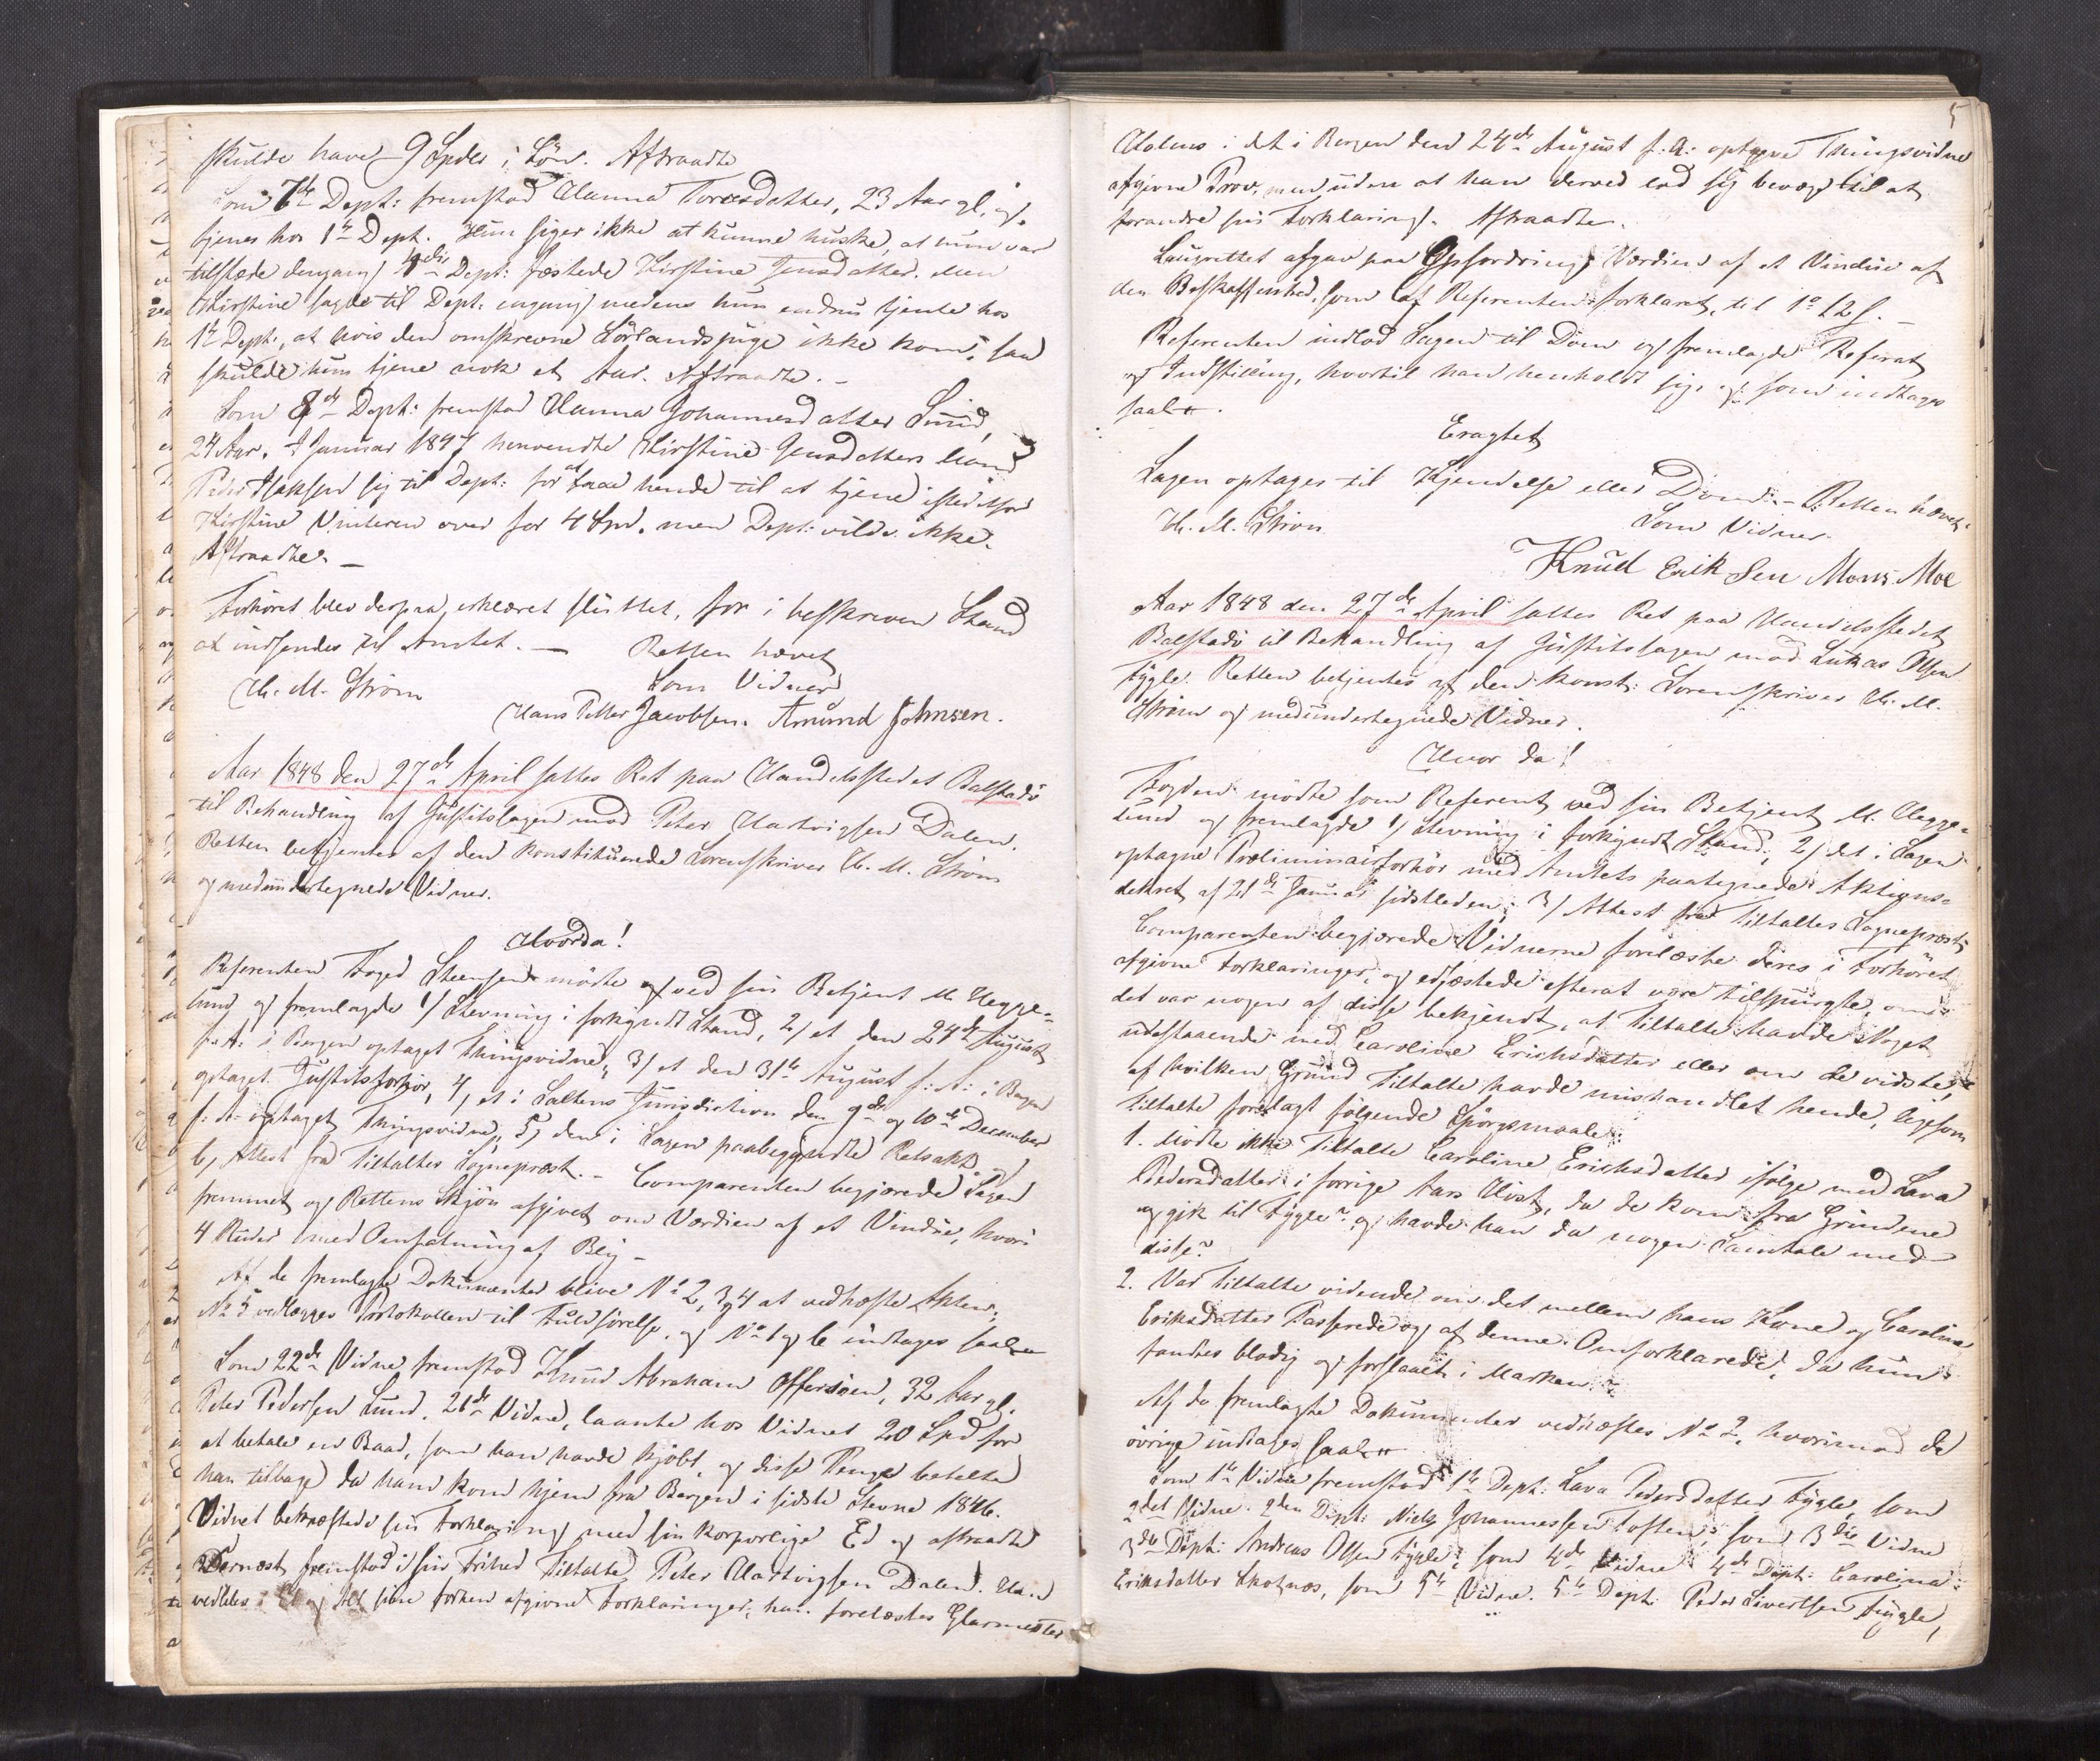 skulde have 9 Spdlr i Løn. Aftraadte
Som 7de Dept: fremstod Hanna Toresdatter, 23 Aar gl,
tjener hos 1ste Dept. Hun siger ikke at kunne huske, at hun var
tilstede dengang 4de Dept: fæstede Kirstine Jensdatter. Men
Kirstine sagde til Dept. engang medens hun endnu tjente hos
1ste Dept., at hvis den omskrevne Sørlandspige ikke kom, saa
skulde hun tjene nok et Aar. Aftraadte. –
Som 8de Dept: fremstod Hanna Johannesdatter Sund,
24 Aar. I Januar 1847 henvendte Kirstine Jensdatters Mand
Peder Isaksen sig til Dept: for at faae hende til at tjene istedetfor
Kirstine Vinteren over for 4 Spd. men Dept: vilde ikke.
Aftraadte. –
Forhøret blev derpaa erklæret sluttet, for i beskreven Stand
at indsendes til Amtet. – Retten hævet
H. M. Strøm Som Vidner
Hans Petter Jacobsen. Amund Johnsen.
Aar 1848 den 27de April sattes Ret paa Handelsstedet Balstadø
til Behandling af Justitssagen mod Peter Hartvigsen Dalen.
Retten betjentes af den konstituerede Sorenskriver H. M. Strøm
og medundertegnede Vidner.
Hvorda!
Referenten Foged Steensen mødte ved sin Betjent M. Hegge=
lund og fremlagde 1/ Stevning i forkyndt Stand, 2/ et den 24de August
f. A: i Bergen optaget Thingsvidne, 3/ et den 31te August f: A: i Bergen
optaget Justitsforhør, 4, et i Saltens Jurisdiction den 9de og 10de December
f: A: optaget Thingsvidne, 5, den i Sagen paabegyndte Retsakt og
6, Attest fra Tiltaltes Sognepræst. – Comparenten begjærede Sagen
fremmet og Rettens Skjøn afgivet om Værdien af et Vindue, hvori
4 Ruder med Omfatning af Bly –
Af de fremlagte Dokumenter blive No 2, 3 og 4 at vedhæfte Akten,
No 5 vedlægges Protokollen til Fuldførelse, og No 1 og 6 indtages saal:
Som 22de Vidne fremstod Knud Abraham Offersøen, 32 Aar gl.
Peter Pedersen Lund, 21de Vidne, laante hos Vidnet 20 Spd for
at betale en Baad, som han havde kjøbt, og disse Penge betalte
han tilbage da han kom hjem fra Bergen i sidste Stevne 1846.
Vidnet bekræftede sin Forklaring med sin korporlige Ed og aftraadte
Dernæst fremstod i sin Frihed Tiltalte, Peter Hartvigsen Dalen. Han
vedblev i Et og Alt sine forhen afgivne Forklaringer; han forelæstes Glarmester
5
i det i Bergen den 24de August f: A: optagne Thingsvidne
afgivne Prov, men uden at han derved lod sig bevæge til at
forandre sin Forklaring. Aftraadte.
Laugrettet afgav paa Opfordring Værdien af et Vindue af
den Beskaffenhed, som af Referenten forklaret, til 12 s. –
Referenten indlod Sagen til Dom og fremlagde Referat
og Indstilling, hvortil han henholdt sig, og som indtages
saal:
Eragtet
Sagen optages til Kjendelse eller Dom. – Retten hævet.
H. M. Strøm Som Vidner
Knud Erik Sen Mons Moe
Aar 1848 den 27de April sattes Ret paa Handelsstedet
Balstadø til Behandling af Justitssagen mod Lukas Olsen
Fygle. Retten betjentes af den konst: Sorenskriver H. M.
Strøm og medundertegnede Vidner.
Hvor da!
Fogden mødte som Referent ved sin Betjent M. Hegge=
lund og fremlagde 1/ Stevning i forkyndt Stand, 2/ det i Sagen
optagne Præliminairforhør med Amtets paategnede Aktions=
dekret af 21de Januar sidstleden; 3/ Attest fra Tiltaltes Sognepræst.
Comparenten begjærede Vidnerne forelæste deres i Forhøret
afgivne Forklaringer, og edfæstede efterat være tilspurgte, om
det var nogen af disse bekjendt, at Tiltalte havde Noget
udestaaende med Caroline Erichsdatter eller om de vidste,
af hvilken Grund Tiltalte havde mishandlet hende, ligesom
Tiltalte forelagt følgende Spørgsmaale:
1. Mødte ikke Tiltalte Caroline Erichsdatter ifølge med Lava
Pedersdatter i forrige Aars Høst, da de kom fra Grindene
og gik til Fygle? og havde han da nogen Samtale med
disse?
2. Var Tiltalte vidende om det mellem hans Kone og Caroline
Eriksdatter Passerede og af denne Omforklarede, da hun
fandtes blodig og forslaaet i Marken?
Af de fremlagte Dokumenter vedhæftes No 2, hvorimod de
øvrige indtages saal:
Som 1ste Vidne fremstod 1ste Dept: Lava Pedersdatter Fygle, som
2det Vidne 2den Dept: Niels Johannessen Toften, som 3die Vidne
3die Dept: Andreas Olsen Fygle, som 4de Vidne 4de Dept: Carolina
Eriksdatter Skotnæs, som 5te Vidne 5te Dept: Peder Sivertsen Fygle,